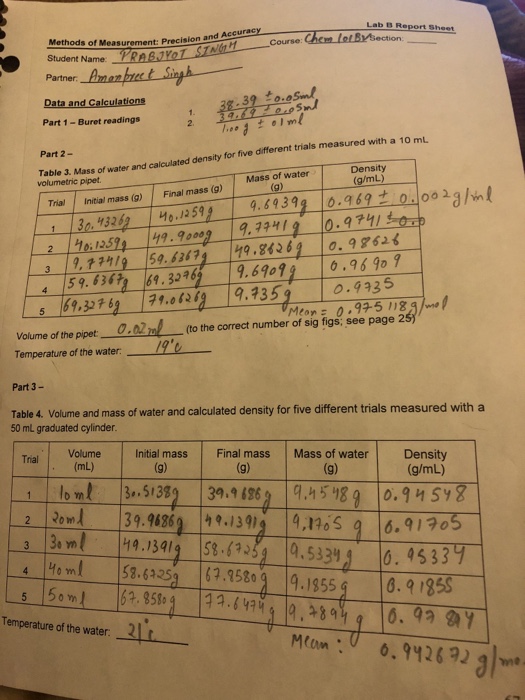 Lab B Report Sheet
Methods of Measurement: Precision and Accuracy
Course: Chem 101 By Section:
Student Name: PRABJYOT SINGH
Partner: Amanpreet Singh
Data and Calculations
Part 1 – Buret readings
1. 38.39 ±0.05ml
2. 39.69 ±0.05ml
1.00 g ± 01 ml
Part 2 –
Table 3. Mass of water and calculated density for five different trials measured with a 10 mL
volumetric pipet.
Trial Initial mass (g) Final mass (g) Mass of water (g) Density (g/mL)
1 30.4326g 40.1259g 9.6939g 0.969 ± 0.002g/ml
2 40.1259g 49.9000g 9.7741g 0.9741 ±0.0
3 9.7741g 59.6367g 49.8626g 0.98626
4 59.6367g 69.3276g 9.6909g 0.96909
5 69.3276g 79.0626g 9.735g 0.9735
Mean = 0.975118g/mol
Volume of the pipet: 0.02ml (to the correct number of sig figs; see page 25)
Temperature of the water: 19°c
Part 3 –
Table 4. Volume and mass of water and calculated density for five different trials measured with a
50 mL graduated cylinder.
Trial Volume (mL) Initial mass (g) Final mass (g) Mass of water (g) Density (g/mL)
1 10ml 30.5138g 39.9686g 9.4548g 0.94548
2 20ml 39.9686g 49.1391g 9.1705g 0.91705
3 30ml 49.1391g 58.6725g 9.5334g 0.95334
4 40ml 58.6725g 67.8580g 9.1855g 0.91855
5 50ml 67.8580g 77.6474g 9.7894g
Temperature of the water: 21°c
Mean: 0.942672 g/mo